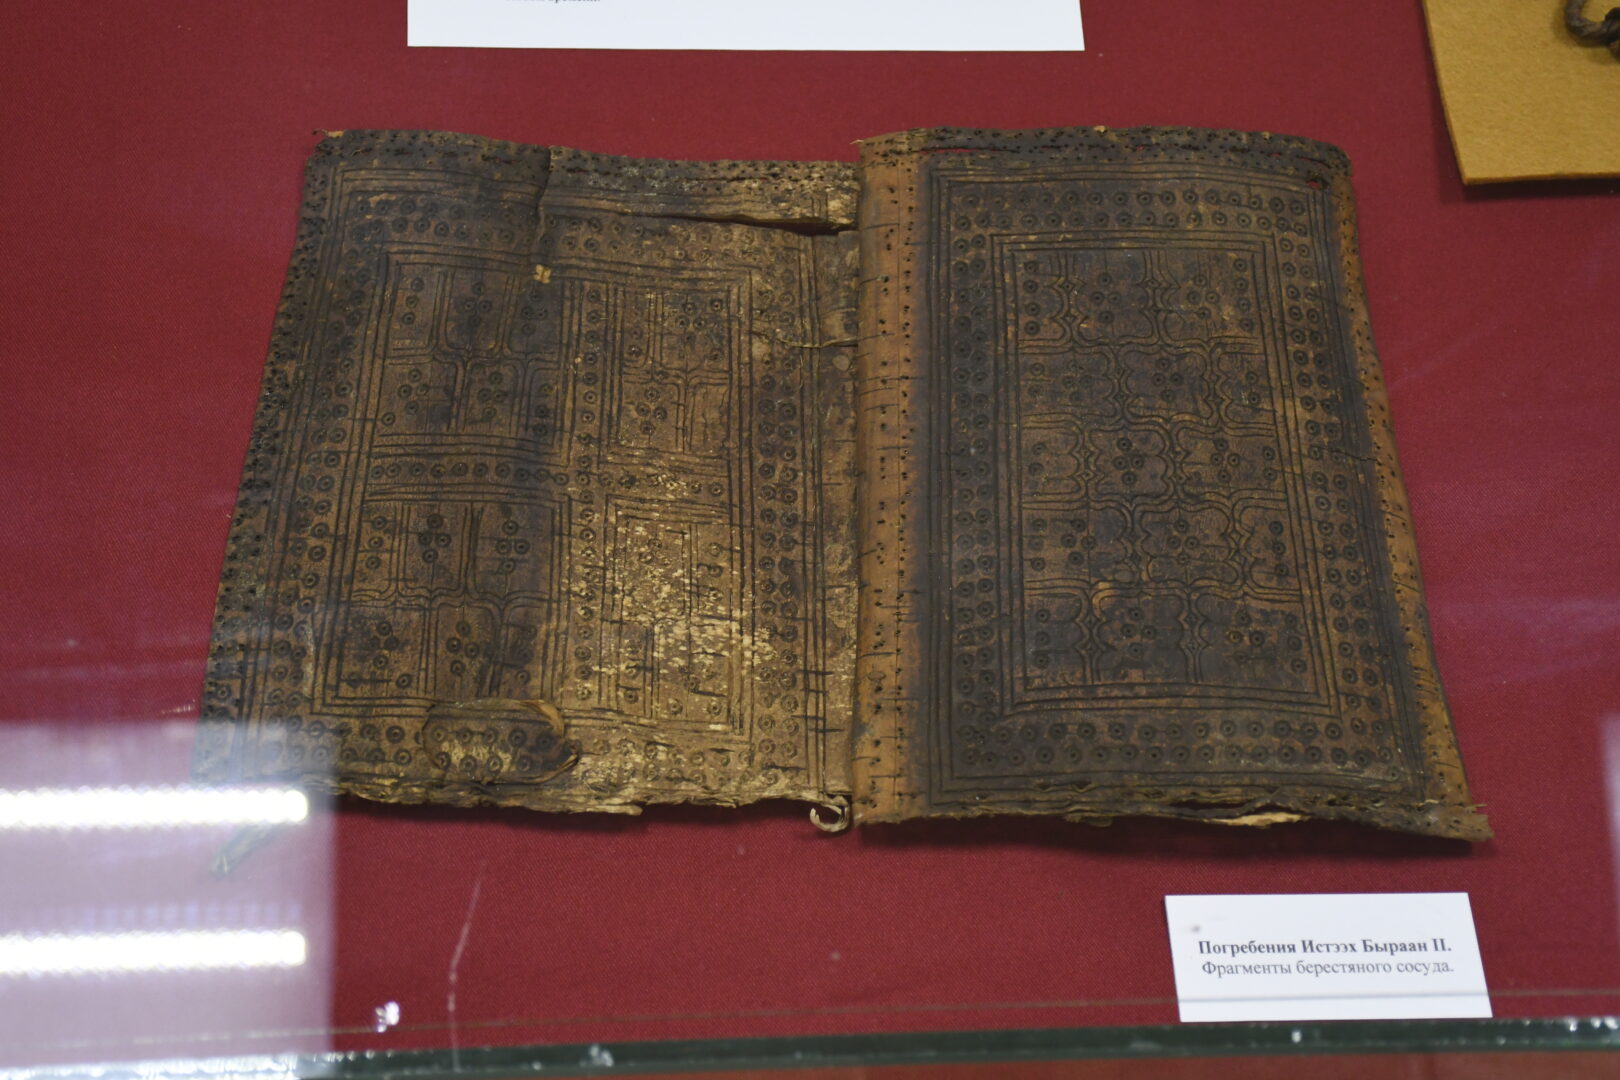 Погребения Истээх Быраан II.
Фрагменты берестяного сосуда.